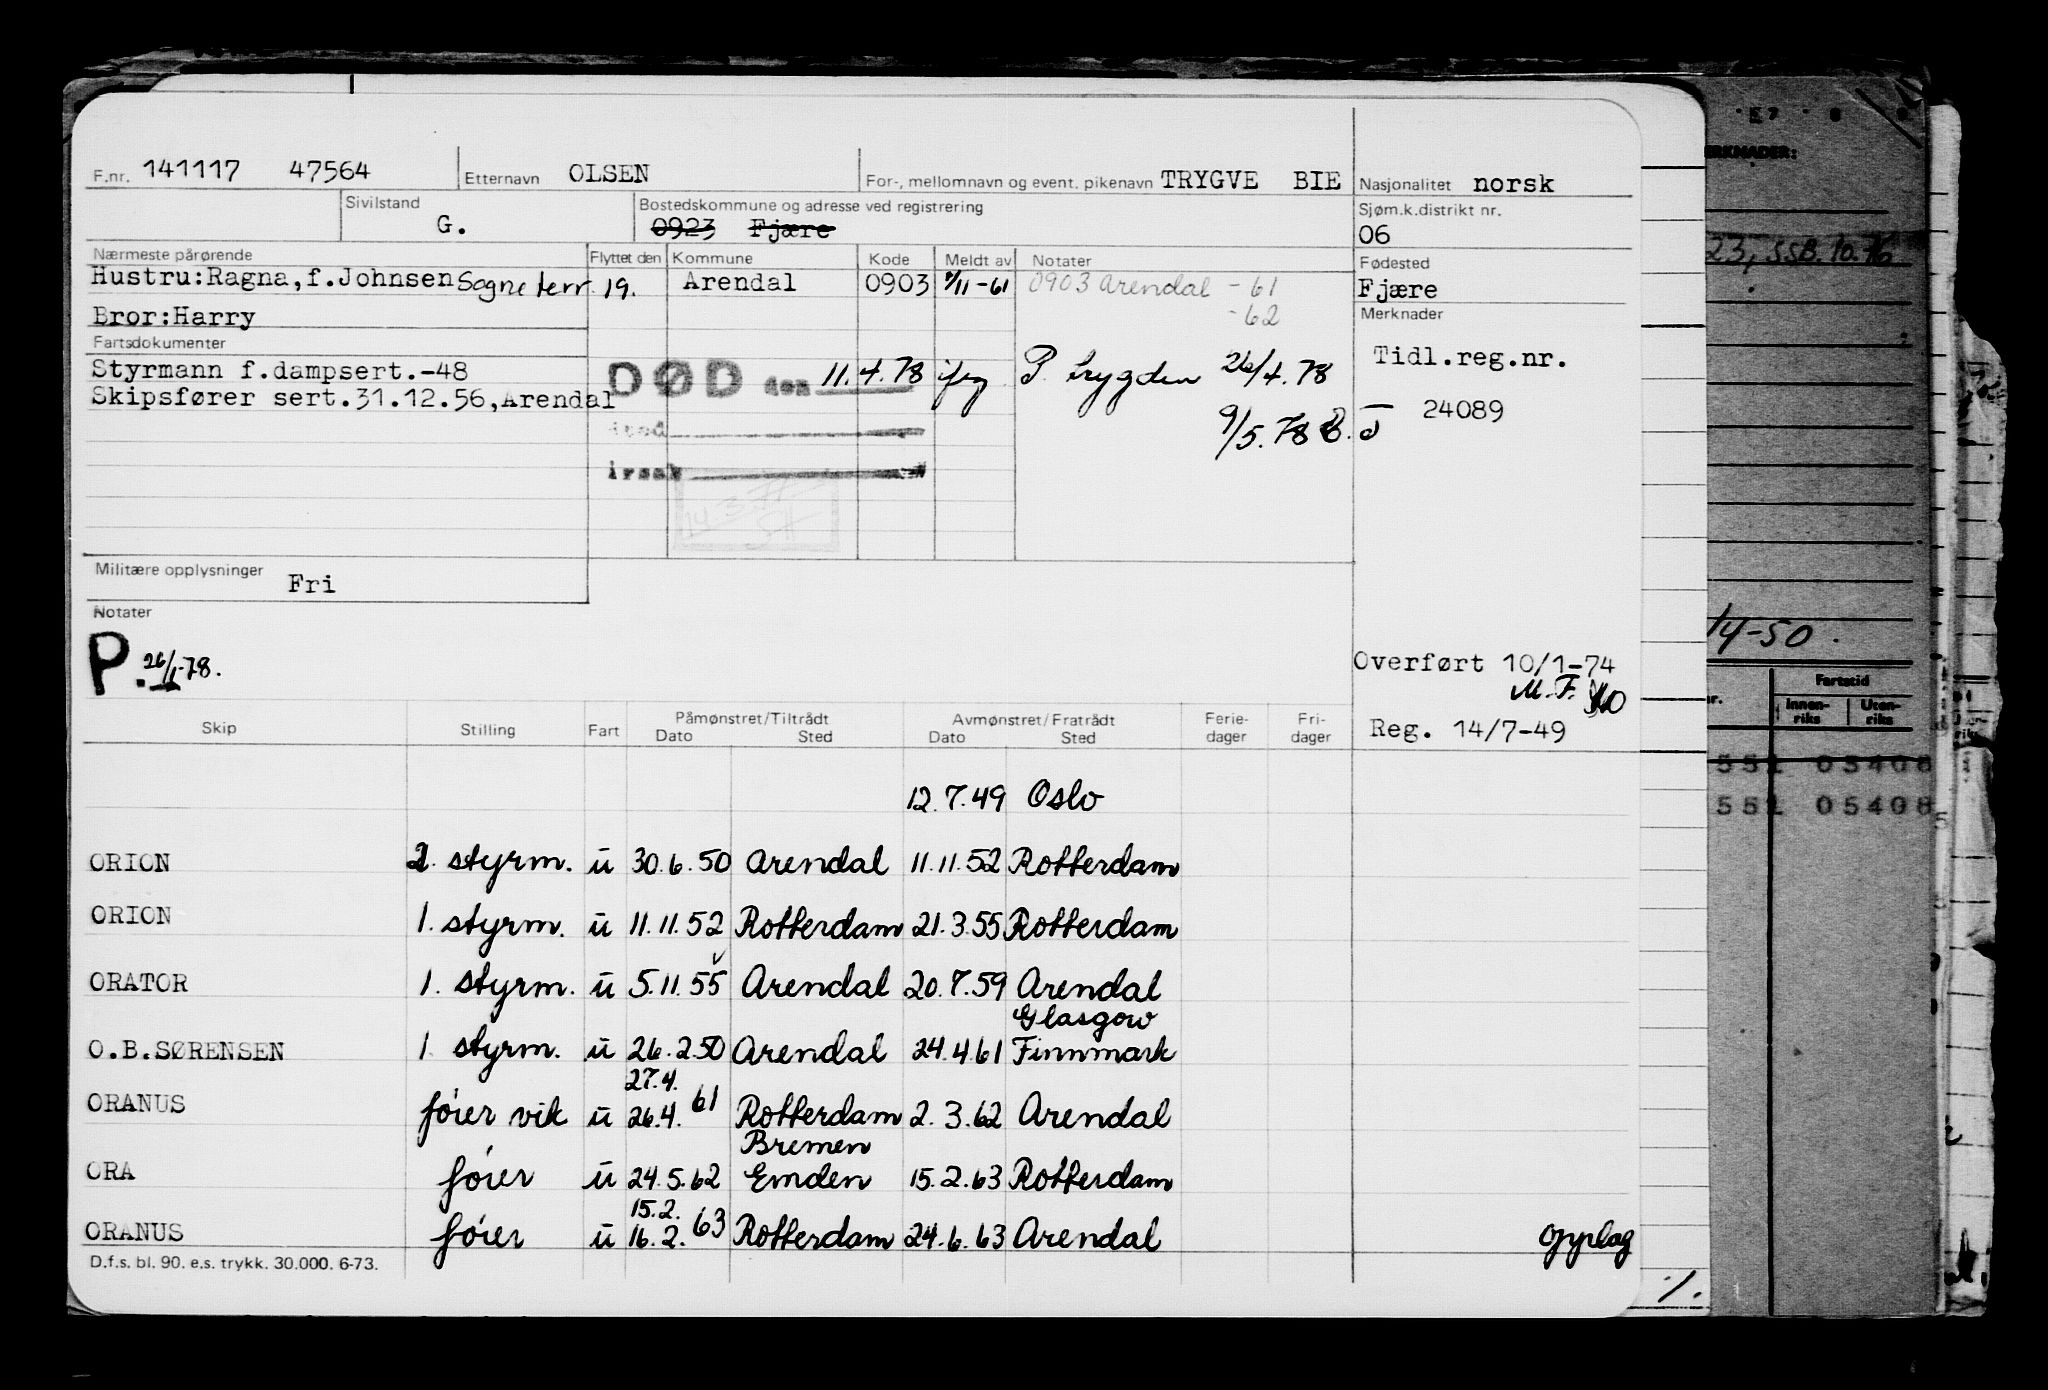 F.nr. 141117 47564 Etternavn OLSEN For-, mellomnavn og event. pikenavn TRYGVE BIE Nasjonalitet norsk
Sivilstand G. Bostedskommune og adresse ved registrering 0923 Fjære Sjøm.k.distrikt nr. 06
Nærmeste pårørende Flyttet den Kommune Kode Meldt av Notater Fødested
Hustru:Ragna,f.Johnsen Sogneterr. 19. Arendal 0903 /11-61 0903 Arendal -61 Fjære
Bror:Harry -62 Merknader
Fartsdokumenter
Styrmann f.dampsert.-48 DØD den 11.4.78 P. trygden 26/4.78 Tidl.reg.nr.
Skipsfører sert.31.12.56,Arendal
9/5.78 24089
Militære opplysninger Fri
Notater
P. 26/1-78.
Overført 10/1-74
M.F.
Reg. 14/7-49
Skip Stilling Fart Påmønstret/Tiltrådt Avmønstret/Fratrådt Ferie- Fri-
Dato Sted Dato Sted dager dager
12.7.49 Oslo
ORION 2. styrm. u 30.6.50 Arendal 11.11.52 Rotterdam
ORION 1. styrm. u 11.11.52 Rotterdam 21.3.55 Rotterdam
ORATOR 1. styrm. u 5.11.55 Arendal 20.7.59 Arendal
Glasgow
O.B.SØRENSEN 1 styrm. u 26.2.50 Arendal 24.4.61 Finnmark
27.4.
ORANUS fóier vik u 26.4. 61 Rotterdam 2.3.62 Arendal
Bremen
ORA fóier u 24.5.62 Emden 15.2.63 Rotterdam
15.2.
ORANUS fóier u 16.2. 63 Rotterdam 24.6.63 Arendal Opplag
D.f.s. bl. 90. e.s. trykk. 30.000. 6-73.
./.
ERKNADER:
23, SSB. 10.76
14-50.
nr. Fartstid
Innen- Uten-
riks riks
551 05408
551 05408